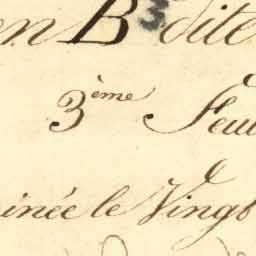 en B dite
3ème Feui
inée le Vingt